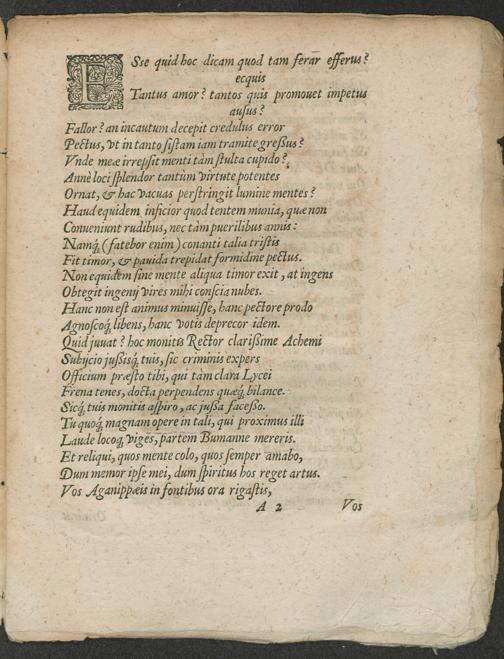 ESse quid hoc dicam quod tam ferar̄ efferus?
ecquis
Tantus amor? tantos quis promouet impetus
ausus?
Fallor? an incautum decepit credulus error
Pectus, vt in tanto sistam iam tramite gressus?
Vnde meæ irrepsit menti tàm stulta cupido?
Annè loci splendor tantùm virtute potentes
Ornat, & hac vacuas perstringit lumine mentes?
Haud equidem inficior quod tentem munia, quæ non
Conueniunt rudibus, nec tàm puerilibus annis:
Namq́; (fatebor enim) conanti talia tristis
Fit timor, & pauida trepidat formidine pectus.
Non equidem sine mente aliqua timor exit, at ingens
Obtegit ingenij vires mihi conscia nubes.
Hanc non est animus minuisse, hanc pectore prodo
Agnoscoq́; libens, hanc votis deprecor idem.
Quid juuat? hoc monitis Rector clarissime Achemi
Subijcio jussisq́; tuis, sic criminis expers
Officium præsto tibi, qui tàm clara Lycei
Frena tenes, docta perpendens quæq́; bilance.
Sicq́; tuis monitis aspiro, ac jussa facesso.
Tu quoq́; magnam opere in tali, qui proximus illi
Laude locoq́; viges, partem Bumanne mereris.
Et reliqui, quos mente colo, quos semper amabo,
Dum memor ipse mei, dum spiritus hos reget artus.
Vos Aganippæis in fontibus ora rigastis,
A 2 Vos